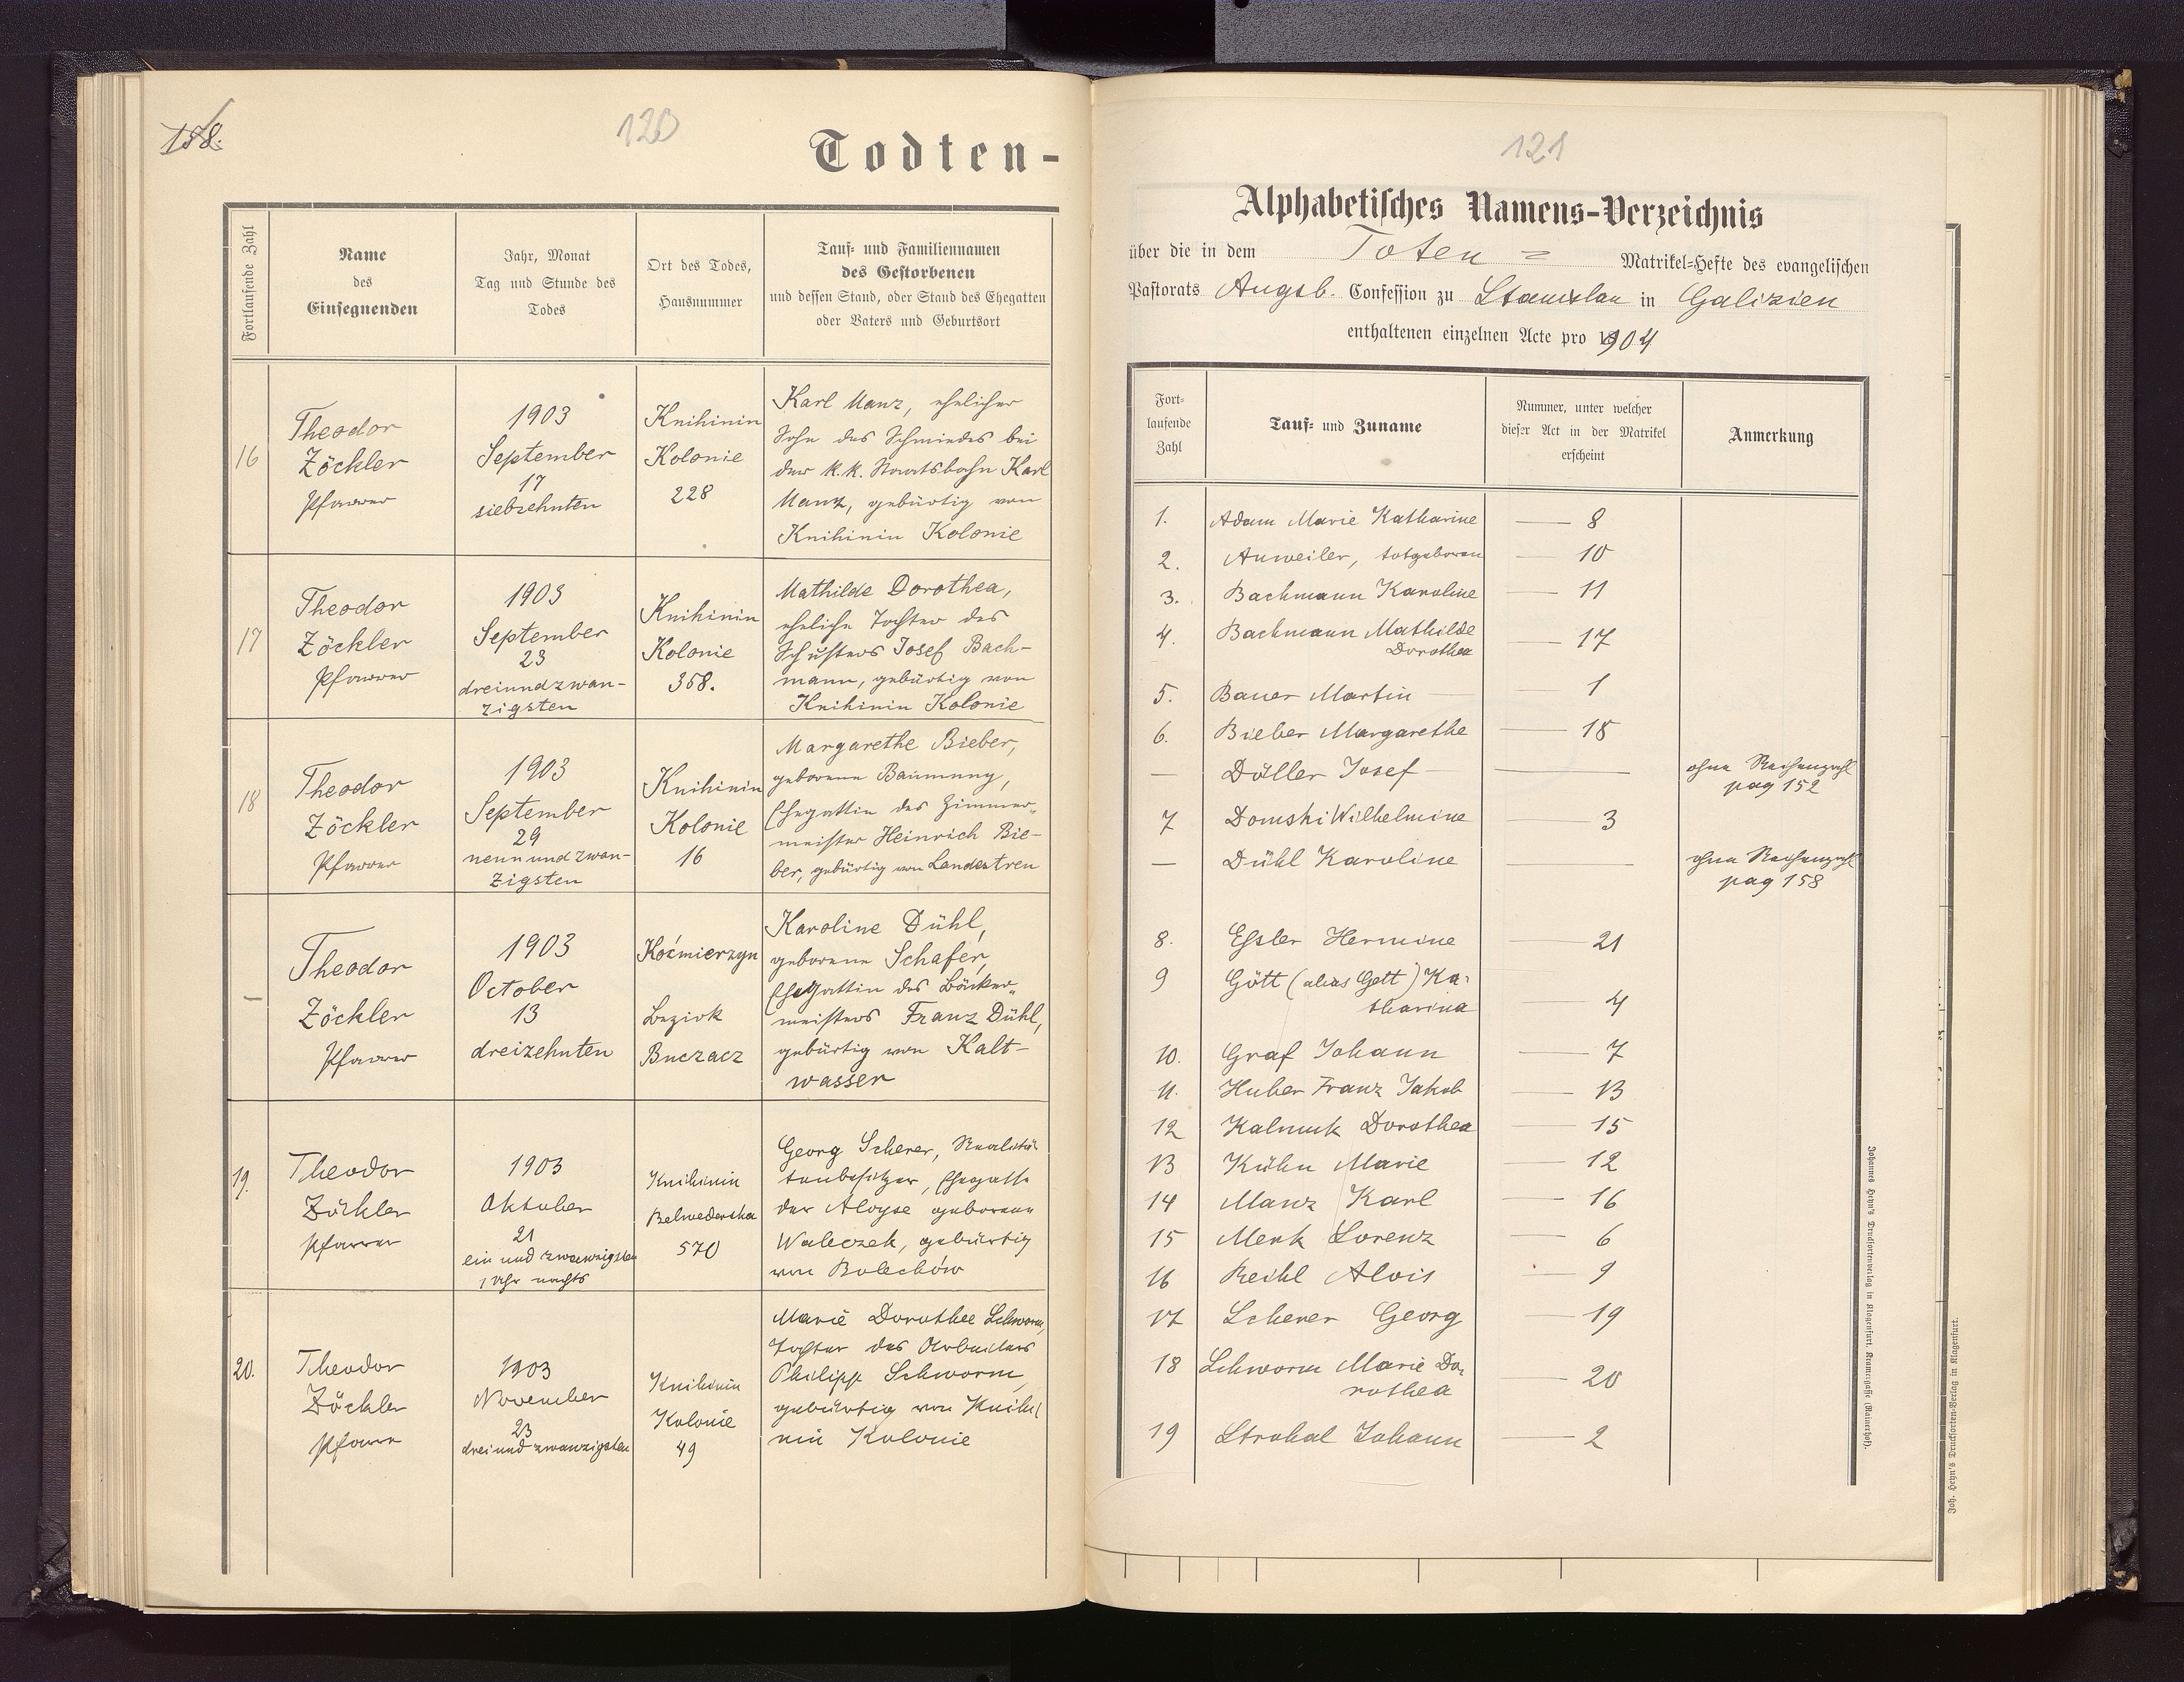 158.
120
Todten-
Fortlaufende Zahl
Name
des
Einsegnenden
Jahr, Monat
Tag und Stunde des
Todes
Ort des Todes,
Hausnummer
Tauf- und Familiennamen
des Gestorbenen
und dessen Stand, oder Stand des Ehegatten
oder Vaters und Geburtsort
16
Theodor
Zöckler
Pfarrer
1903
September
17
siebzehnten
Knihinin
Kolonie
228
Karl Manz, ehelicher
Sohn des Schmiedes bei
der k.k. Staatsbahn Karl
Manz, gebürtig von
Knihinin Kolonie
17
Theodor
Zöckler
Pfarrer
1903
September
23
dreiundzwan-
zigsten
Knihinin
Kolonie
358.
Mathilde Dorothea,
eheliche Tochter des
Schusters Josef Bach-
mann, gebürtig von
Knihinin Kolonie
18
Theodor
Zöckler
Pfarrer
1903
September
29
neunundzwan-
zigsten
Knihinin
Kolonie
16
Margarethe Bieber,
geborene Baumung,
Ehegattin des Zimmer-
meister Heinrich Bie-
ber, gebürtig von Landestreu
—
Theodor
Zöckler
Pfarrer
1903
October
13
dreizehnten
Koźmierzyn
Bezirk
Buczacz
Karoline Dühl,
geborene Schafer,
Ehegattin des Bäcker-
meisters Franz Dühl,
gebürtig von Kalt-
wasser
19.
Theodor
Zöckler
Pfarrer
1903
Oktober
21
ein und zwanzigsten
1 Uhr nachts
Knihinin
Belwederska
570
Georg Scherer, Realitä-
tenbesitzer, Ehegatte
der Aloyse geborene
Waleczek, gebürtig
von Bolechów
20.
Theodor
Zöckler
Pfarrer
1903
November
23
dreiund zwanzigsten
Knihinin
Kolonie
49
Marie Dorothee Schworm,
Tochter des Arbeiters
Philipp Schworm,
gebürtig von Knihi
nin Kolonie
121
Alphabetisches Namens-Verzeichnis
über die in dem Toten = Matrikel-Hefte des evangelischen
Pastorats Augsb. Confession zu Stanislau in Galizien
enthaltenen einzelnen Acte pro 1904
Fort-
laufende
Zahl
Tauf- und Zuname
Nummer, unter welcher
dieser Act in der Matrikel
erscheint
Anmerkung
1. Adam Marie Katharine — 8
2. Anweiler, totgeboren — 10
3. Bachmann Karoline — 11
4. Bachmann Mathilde
Dorothea — 17
5. Bauer Martin — 1
6. Bieber Margarethe — 18
— Döller Josef — ohne Reihenzahl
pag 152
7 Domski Wilhelmine — 3
— Dühl Karoline — ohne Reihenzahl
pag 158
8. Eßler Hermine — 21
9 Gött (alias Gett) Ka-
tharina — 4
10. Graf Johann — 7
11. Huber Franz Jakob — 13
12 Kalmuk Dorothea — 15
13 Kühn Marie — 12
14 Manz Karl — 16
15 Merk Lorenz — 6
16 Reihl Alois — 9
17 Scherer Georg — 19
18 Schworm Marie Do-
rothea — 20
19 Strohal Johann — 2
Johannes Heyn's Drucksortenverlag in Klagenfurt. Kramergasse (Rainerhof).
Joh. Heyn's Drucksorten-Verlag in Klagenfurt.